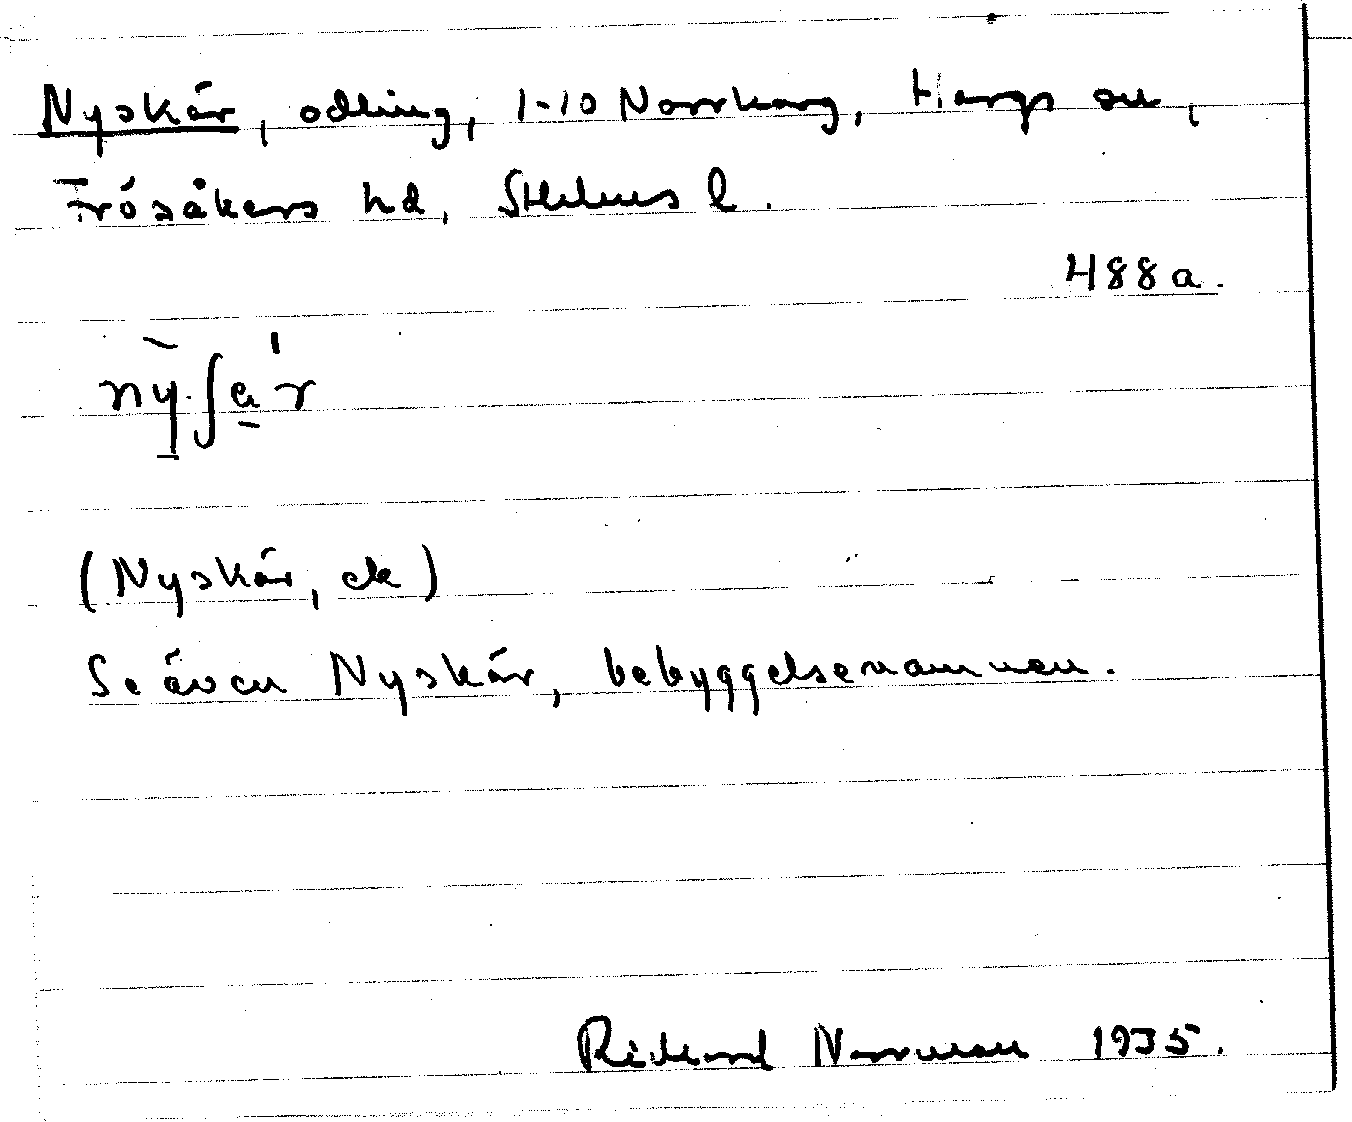 Nyskär, odling, 1-10 Norrharg, Hargs sn,
Frösåkers hd, Sthlms l.
488a.
(Nyskär, ek)
Se även Nyskär, bebyggelsenamnen.
Rickard Norrman 1935.